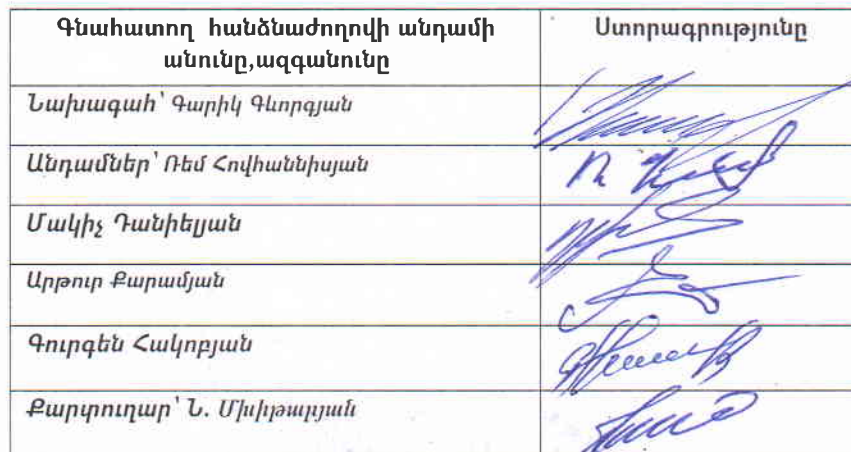 Գնահատող հանձնաժողովի անդամի Ստորագրությունը
անունը,ազգանունը
Նախագահ՝ Գարիկ Գևորգյան
Անդամներ՝ Ռեմ Հովհաննիսյան
Մակիչ Դանիելյան
Արթուր Քարամյան
Գուրգեն Հակոբյան
Քարտուղար՝ Ն. Մխիթարյան